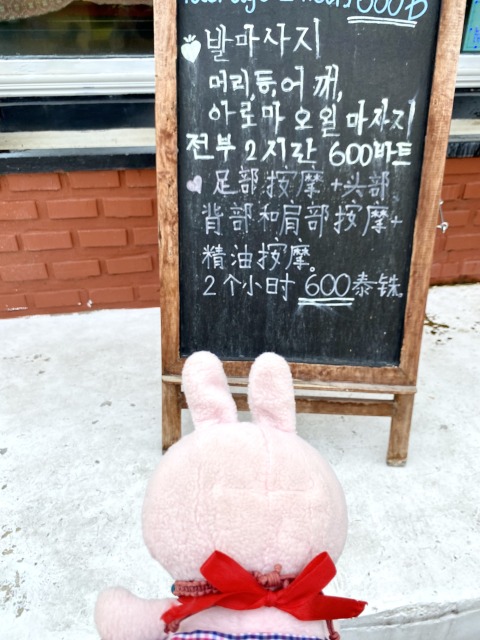 2 hours 600฿
발마사지
머리,등,어깨,
아로마 오일 마자지
전부 2시간 600바트
足部按摩+头部,
背部和肩部按摩+
精油按摩。
2个小时 600泰铢。